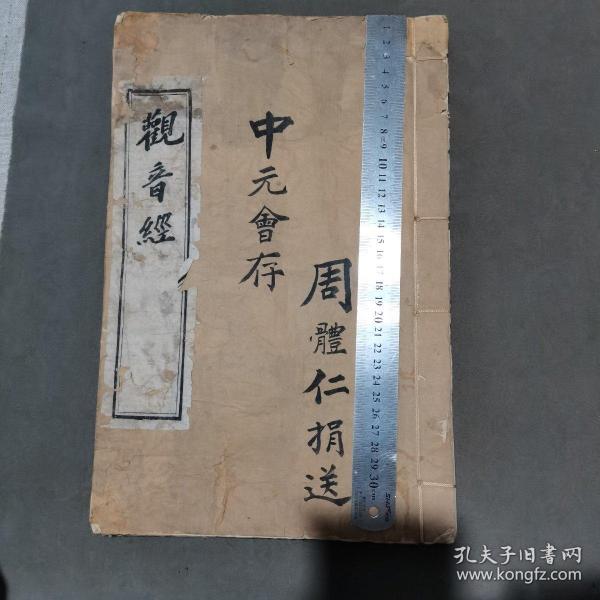 觀音經
中元會存
周體仁捐送
1 2 3 4 5 6 7 8 9 10 11 12 13 14 15 16 17 18 19 20 21 22 23 24 25 26 27 28 29 30cm
孔夫子旧书网
www.kongfz.com